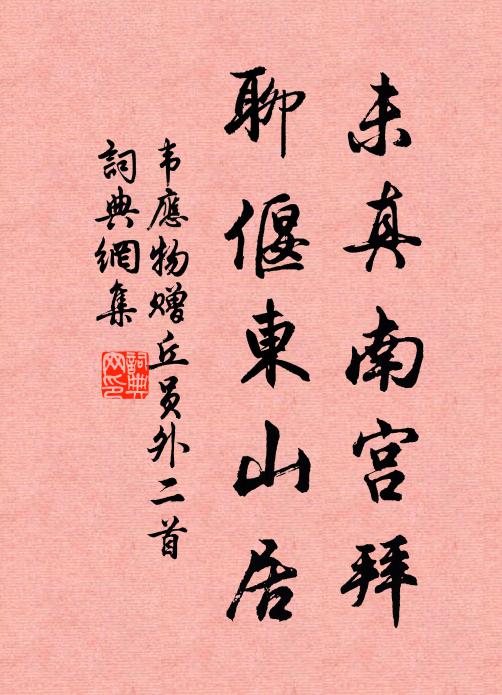 未真南宫拜
聊偃東山居
韦應物赠丘员外二首
詞典網集
詞典网印